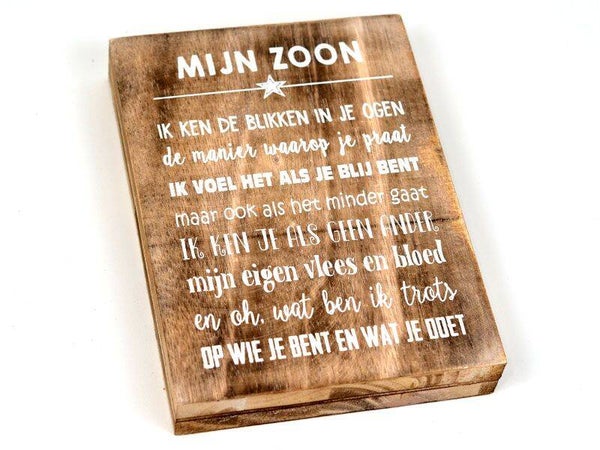 MIJN ZOON
IK KEN DE BLIKKEN IN JE OGEN
de manier waarop je praat
IK VOEL HET ALS JE BLIJ BENT
maar ook als het minder gaat
IK KEN JE ALS GEEN ANDER
mijn eigen vlees en bloed
en oh, wat ben ik trots
OP WIE JE BENT EN WAT JE DOET